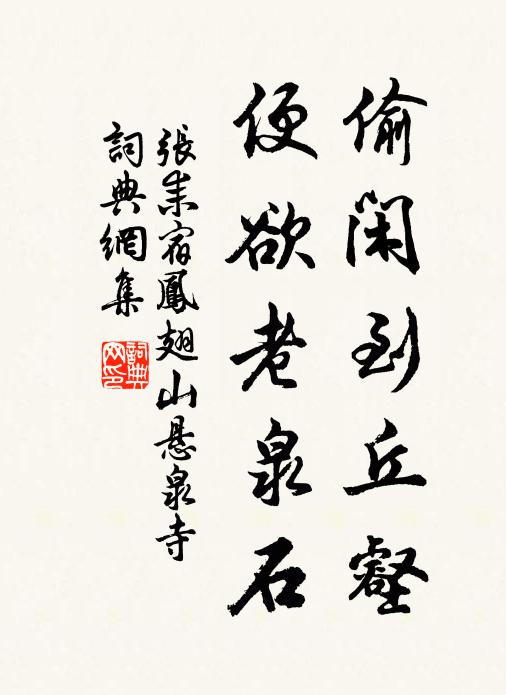 偷閑到丘壑
便欲老泉石
張耒宿鳳翅山悬泉寺
詞典網集
詞典
网印